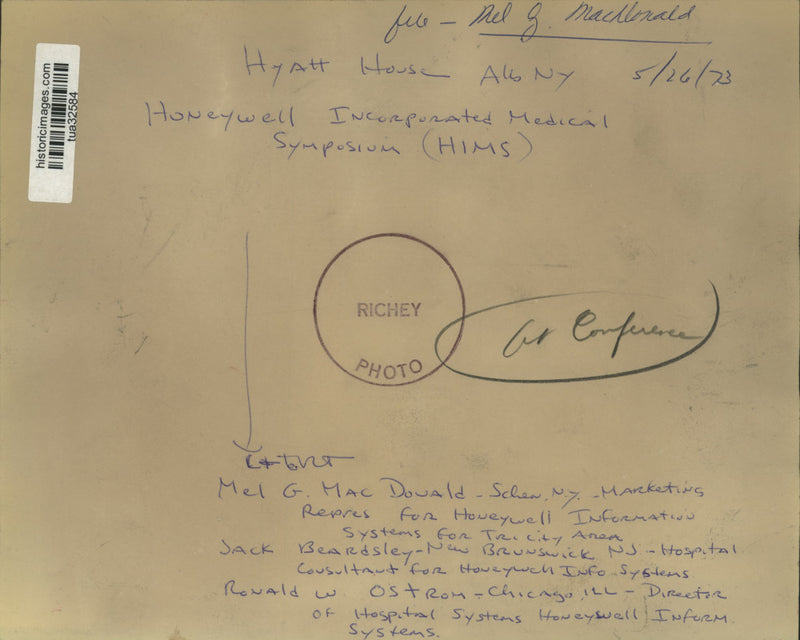 file - Mel G. MacDonald
Hyatt House Alb NY 5/26/73
Honeywell Incorporated Medical
Symposium (HIMS)
historicimages.com
tua32584
RICHEY
PHOTO
At Conference
L to RT
Mel G. Mac Donald - Schen, N.Y. - Marketing
Repres for Honeywell Information
Systems for Tri City Area
Jack Beardsley - New Brunswick NJ - Hospital
Consultant for Honeywell Info Systems
Ronald W OStrom - Chicago, ILL - Director
of Hospital Systems Honeywell Inform
Systems.